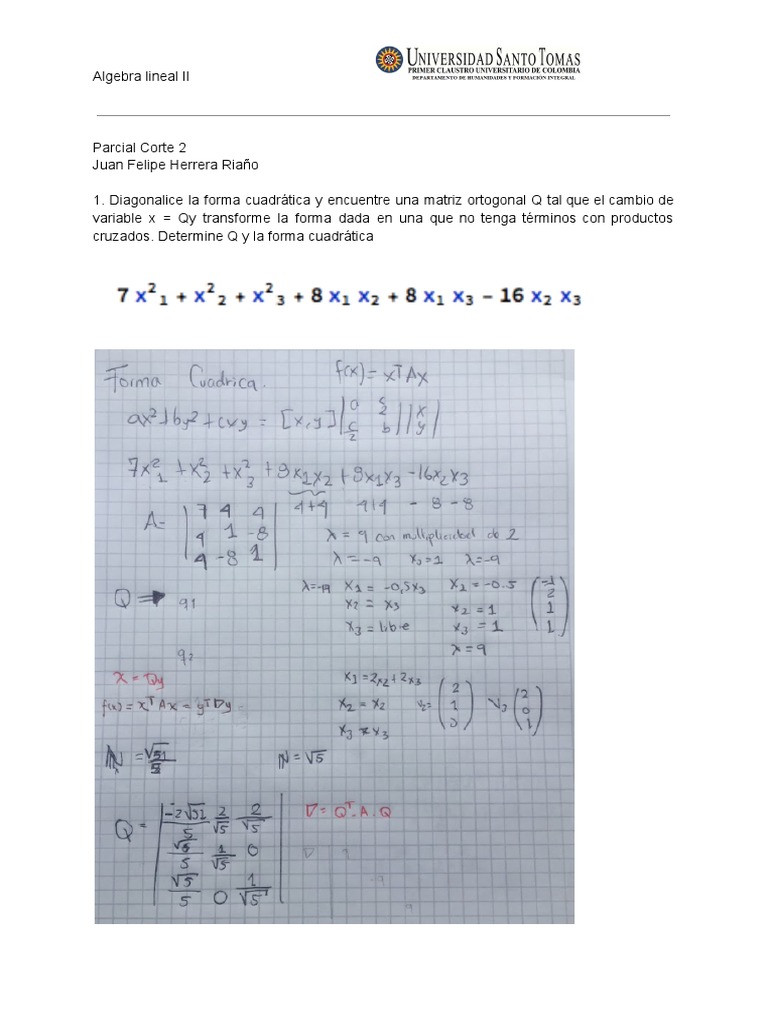 Algebra lineal II
UNIVERSIDAD SANTO TOMAS
PRIMER CLAUSTRO UNIVERSITARIO DE COLOMBIA
DEPARTAMENTO DE HUMANIDADES Y FORMACIÓN INTEGRAL
Parcial Corte 2
Juan Felipe Herrera Riaño
1. Diagonalice la forma cuadrática y encuentre una matriz ortogonal Q tal que el cambio de
variable x = Qy transforme la forma dada en una que no tenga términos con productos
cruzados. Determine Q y la forma cuadrática
7 x²₁ + x²₂ + x²₃ + 8 x₁ x₂ + 8 x₁ x₃ – 16 x₂ x₃
Forma Cuadrica. f(x) = xᵀAx
ax²+by²+cxy = [x,y] |a c/2| |x|
|c/2 b| |y|
7x²₁ +x²₂ +x²₃ +8x₁x₂ +8x₁x₃ -16x₂x₃
4+4 4+4 - 8 - 8
A= |7 4 4|
|4 1 -8|
|4 -8 1|
λ = 9 con multiplicidad de 2
λ = -9 x₃=1 λ=-9
x₁ = -0,5x₃ x₂ = -0.5
x₂ = x₃ x₂ = 1
x₃ = libre x₃ = 1
λ = 9
Q → q1
q2
x = Qy
f(x) = xᵀAx = yᵀDy
x₁ = 2x₂ + 2x₃
x₂ = x₂ v₂= (2 1 0) V₃ (2 0 1)
x₃ = x₃
N = √5
Q = |-2√51/5 2/√5 2/√5|
|√5/5 1/√5 0|
|√5/5 0 1/√5|
D = Qᵀ. A . Q